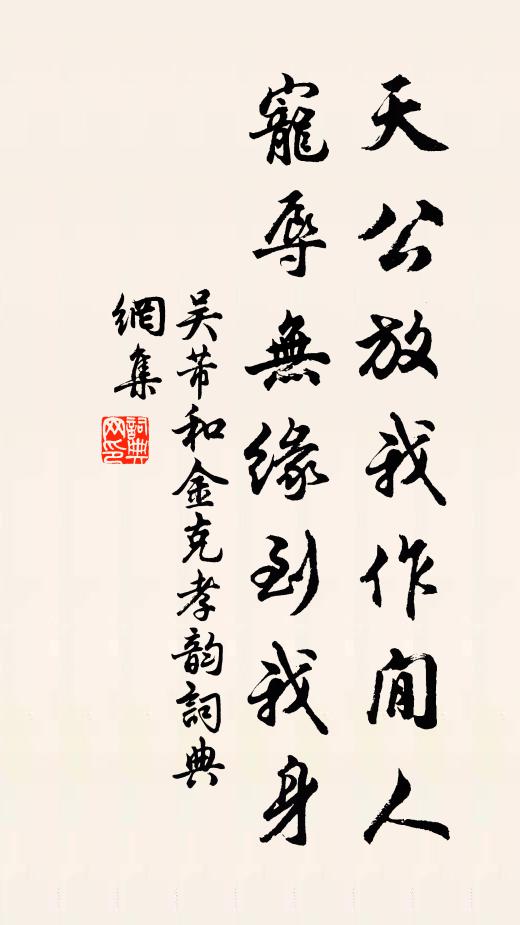 天公放我作閒人
寵辱無緣到我身
吴芾和金克孝韵詞典
網集
詞典網印